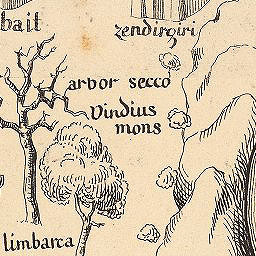 bait
zendirgiri
arbor secco
Vindius
mons
limbarca